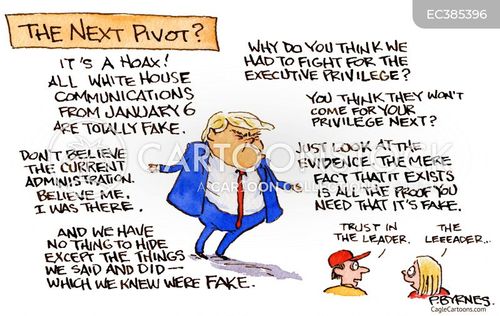 EC385396
THE NEXT PIVOT?
IT'S A HOAX!
ALL WHITE HOUSE
COMMUNICATIONS
FROM JANUARY 6
ARE TOTALLY FAKE.
DON'T BELIEVE
THE CURRENT
ADMINISTRATION.
BELIEVE ME,
I WAS THERE.
AND WE HAVE
NO THING TO HIDE
EXCEPT THE THINGS
WE SAID AND DID—
WHICH WE KNEW WERE FAKE.
WHY DO YOU THINK WE
HAD TO FIGHT FOR THE
EXECUTIVE PRIVILEGE?
YOU THINK THEY WON'T
COME FOR YOUR
PRIVILEGE NEXT?
JUST LOOK AT THE
EVIDENCE. THE MERE
FACT THAT IT EXISTS
IS ALL THE PROOF YOU
NEED THAT IT'S FAKE.
TRUST IN
THE LEADER.
THE
LEEEADER...
P.BYRNES.
CagleCartoons.com